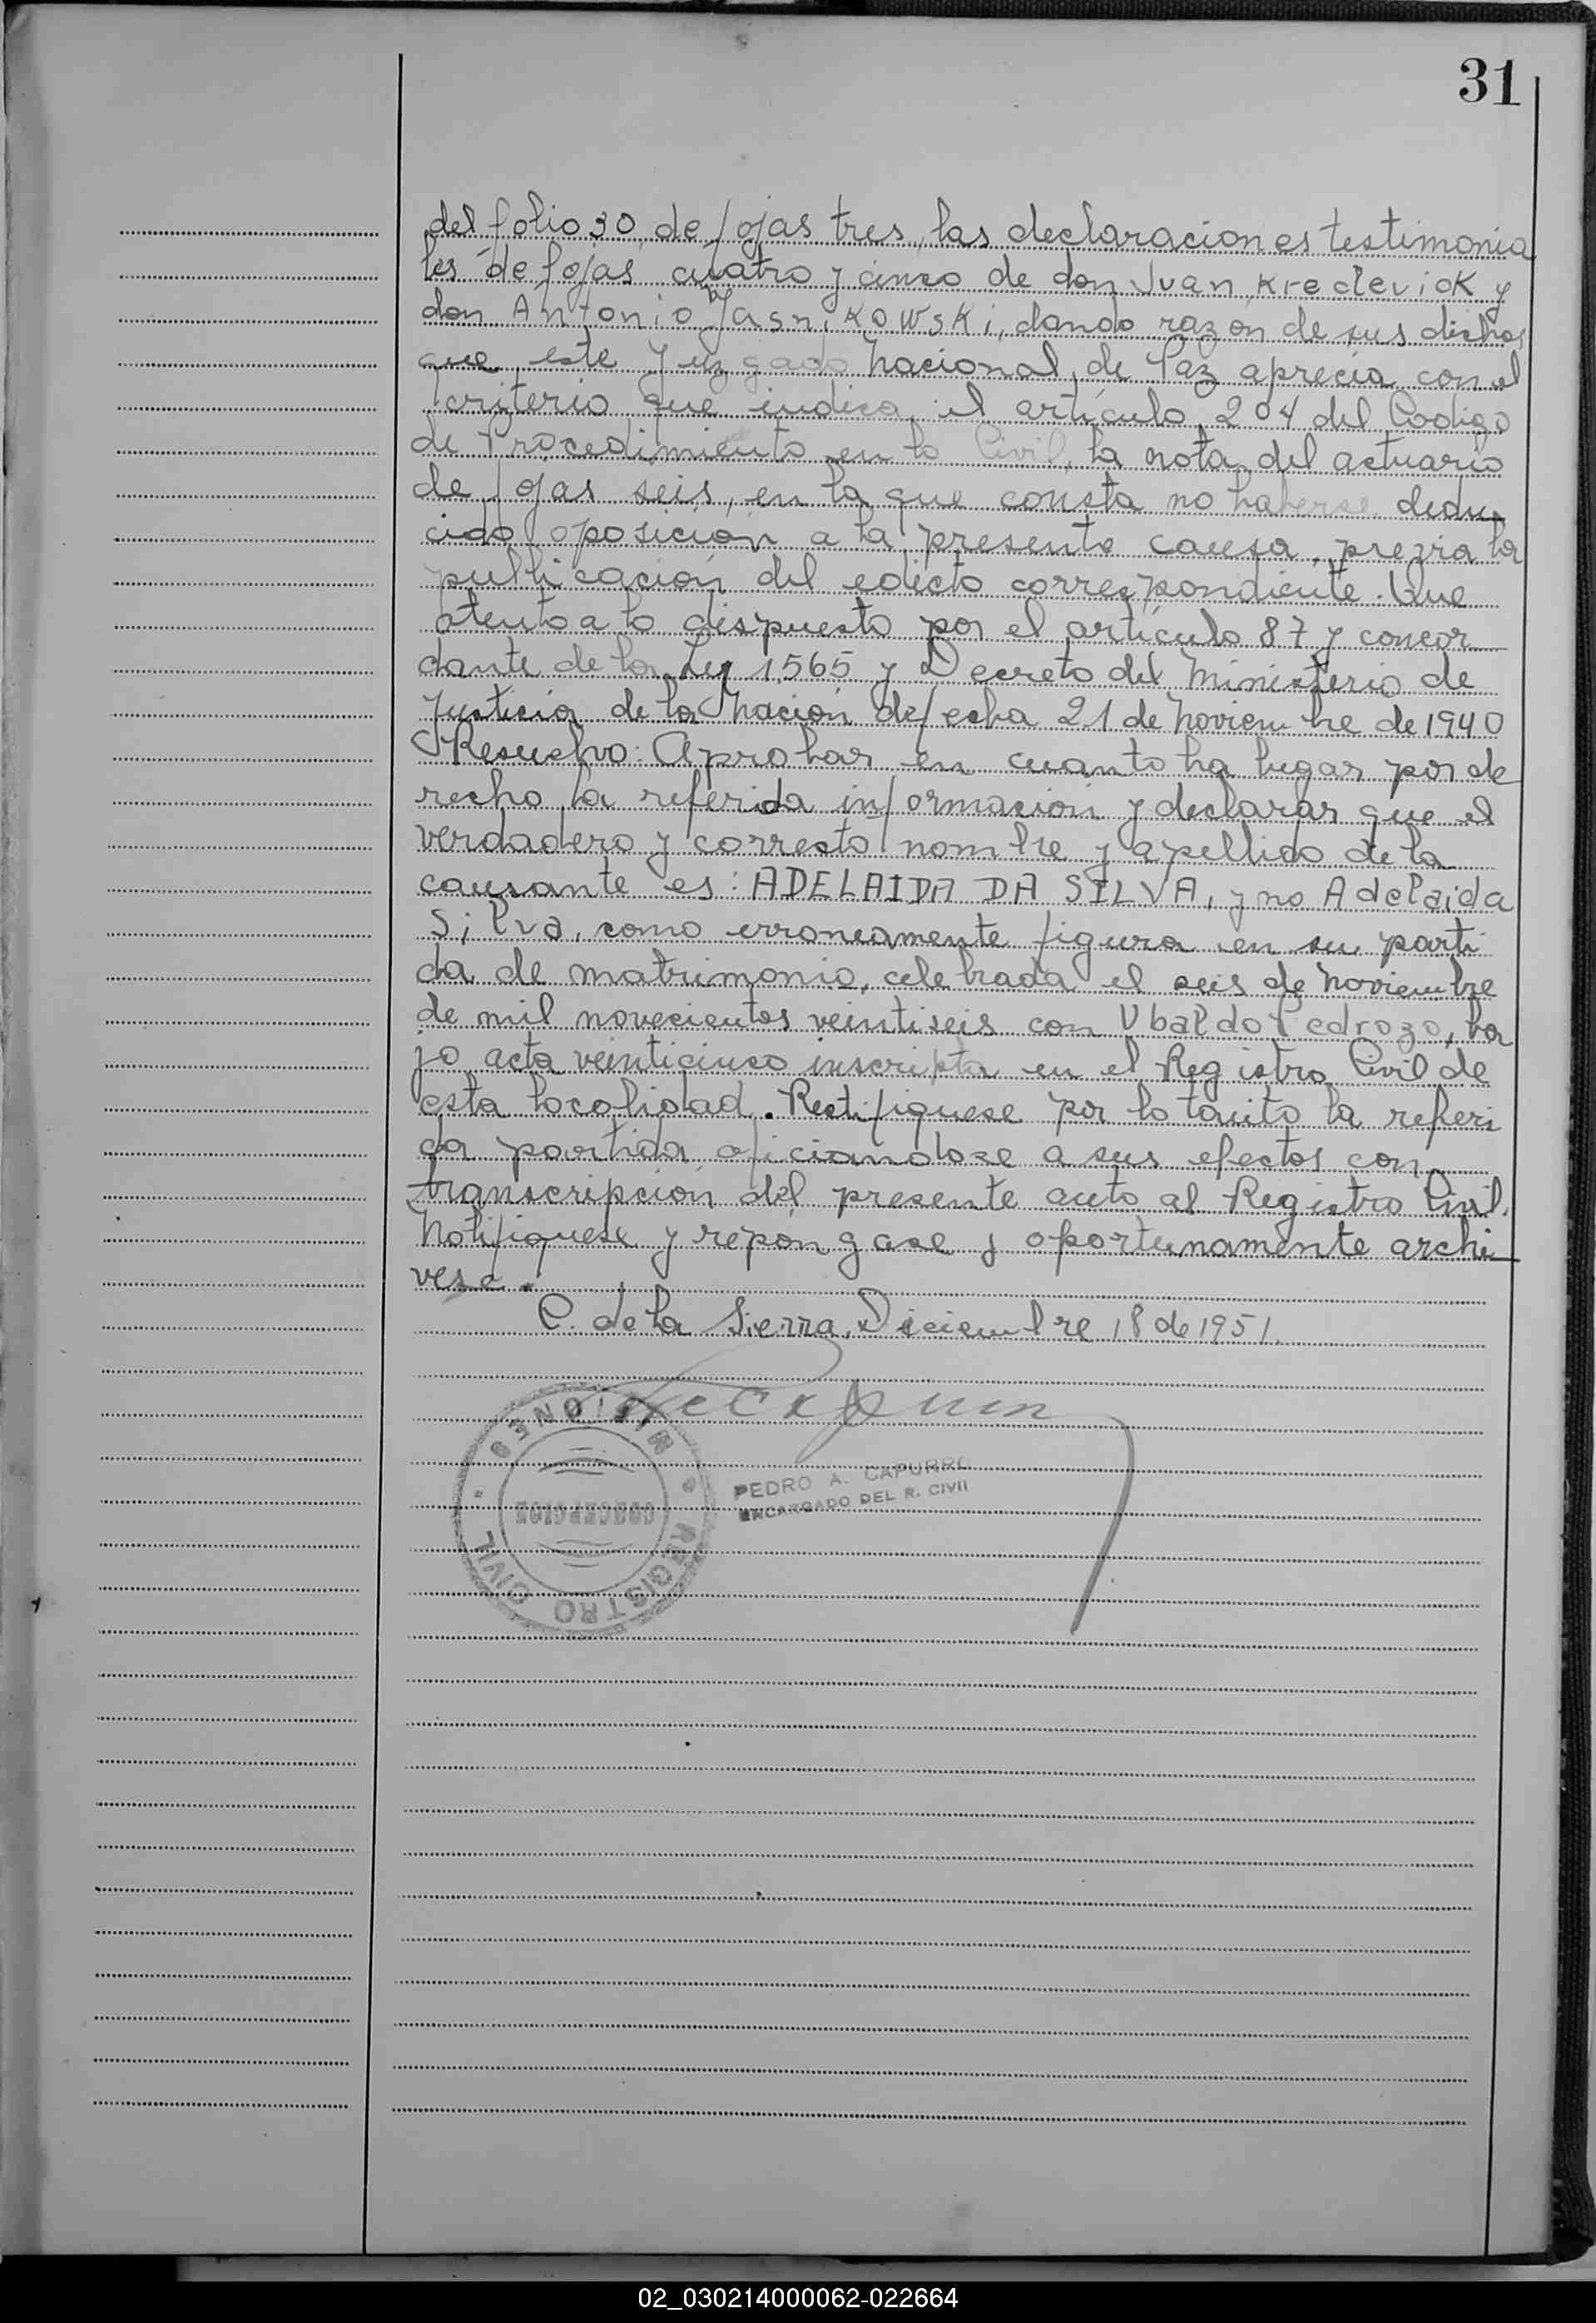 31
del folio 30, de fojas tres, las declaraciones testimonia
les de fojas cuatro y cinco de don Juan Kredevick y
don Antonio Jasnikowski, dando razon de sus dichos
que este Juzgado Nacional de Paz aprecia con el
criterio que indica el artículo 204 del Codigo
de Procedimiento en lo Civil, la nota del actuario
de fojas seis, en la que consta no haberse dedu-
cido oposición a la presente causa, previa la
publicación del edicto correspondiente. Que
atento a lo dispuesto por el artículo 87 y concor
dante de la Ley 1565 y Decreto del Ministerio de
Justicia de la Nación de fecha 21 de Noviembre de 1940
Resuelvo: Aprobar en cuanto ha lugar por de
recho la referida información y declarar que el
verdadero y correcto nombre y apellido de la
causante es: ADELAIDA DA SILVA, y no Adelaida
Silva, como erroneamente figura en su parti
da de matrimonio, celebrada el seis de Noviembre
de mil novecientos veintiseis con Ubaldo Pedrozo, ba
jo acta veinticinco inscripta en el Registro Civil de
esta localidad. Rectifiquese por lo tanto la referi
da partida oficiandose a sus efectos con
transcripción del presente auto al Registro Civil.
Notifiquese y repóngase y oportunamente archi-
vese.
C. de la Sierra, Diciembre 18 de 1951.
MISIONES
CONCEPCION
REGISTRO CIVIL
PEDRO A. CAPURRO
ENCARGADO DEL R. CIVIL
02_030214000062-022664